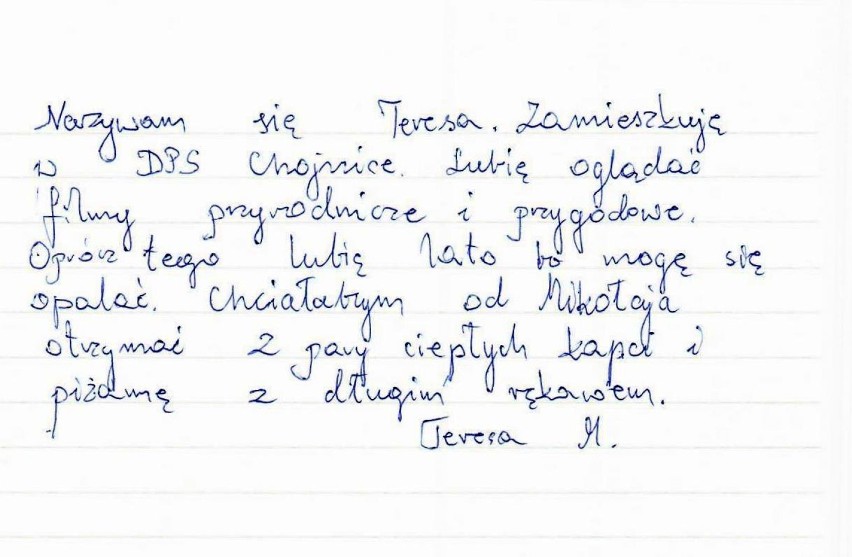 Nazywam się Teresa. Zamieszkuję
w DPS Chojnice. Lubię oglądać
filmy przyrodnicze i przygodowe.
Oprócz tego lubię lato bo mogę się
opalać. Chciałabym od Mikołaja
otrzymać 2 pary ciepłych kapci i
piżamę z długim rękawem.
Teresa M.